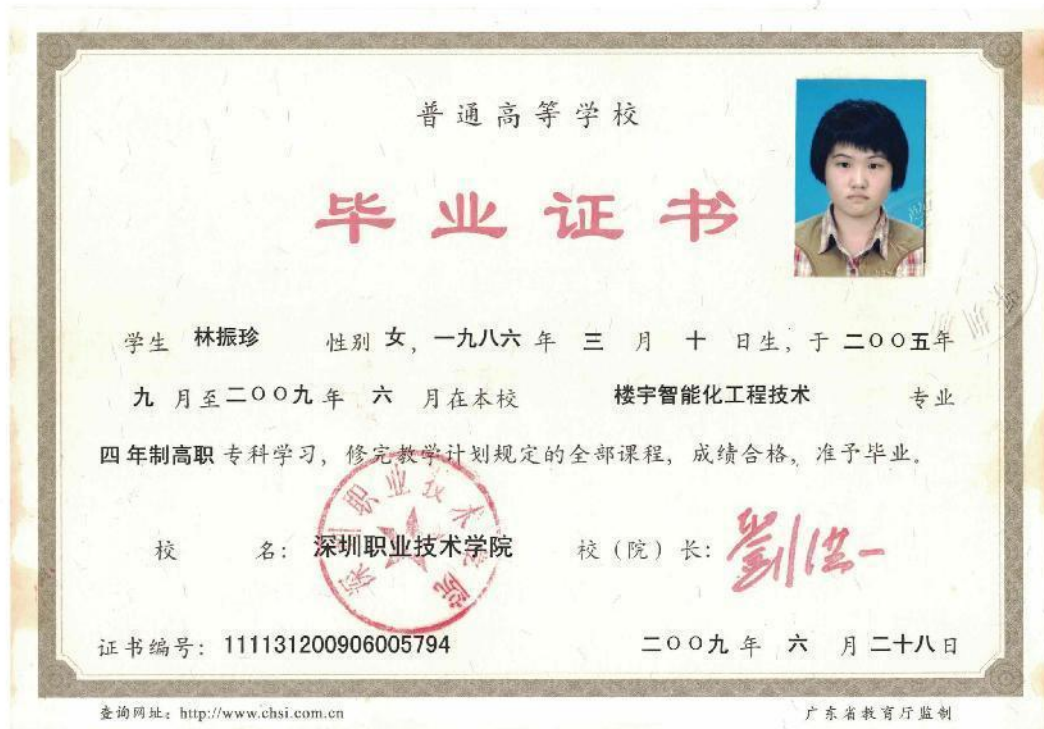 普通高等学校
毕业证书
学生 林振珍 性别 女，一九八六 年 三 月 十 日生，于 二〇〇五年
九 月至 二〇〇九 年 六 月在本校 楼宇智能化工程技术 专业
四年制高职 专科学习，修完教学计划规定的全部课程，成绩合格，准予毕业。
深圳职业技术学院
校 名：深圳职业技术学院 校（院）长：劉洪一
证书编号：111131200906005794 二〇〇九 年 六 月 二十八 日
查询网址：http://www.chsi.com.cn 广东省教育厅监制